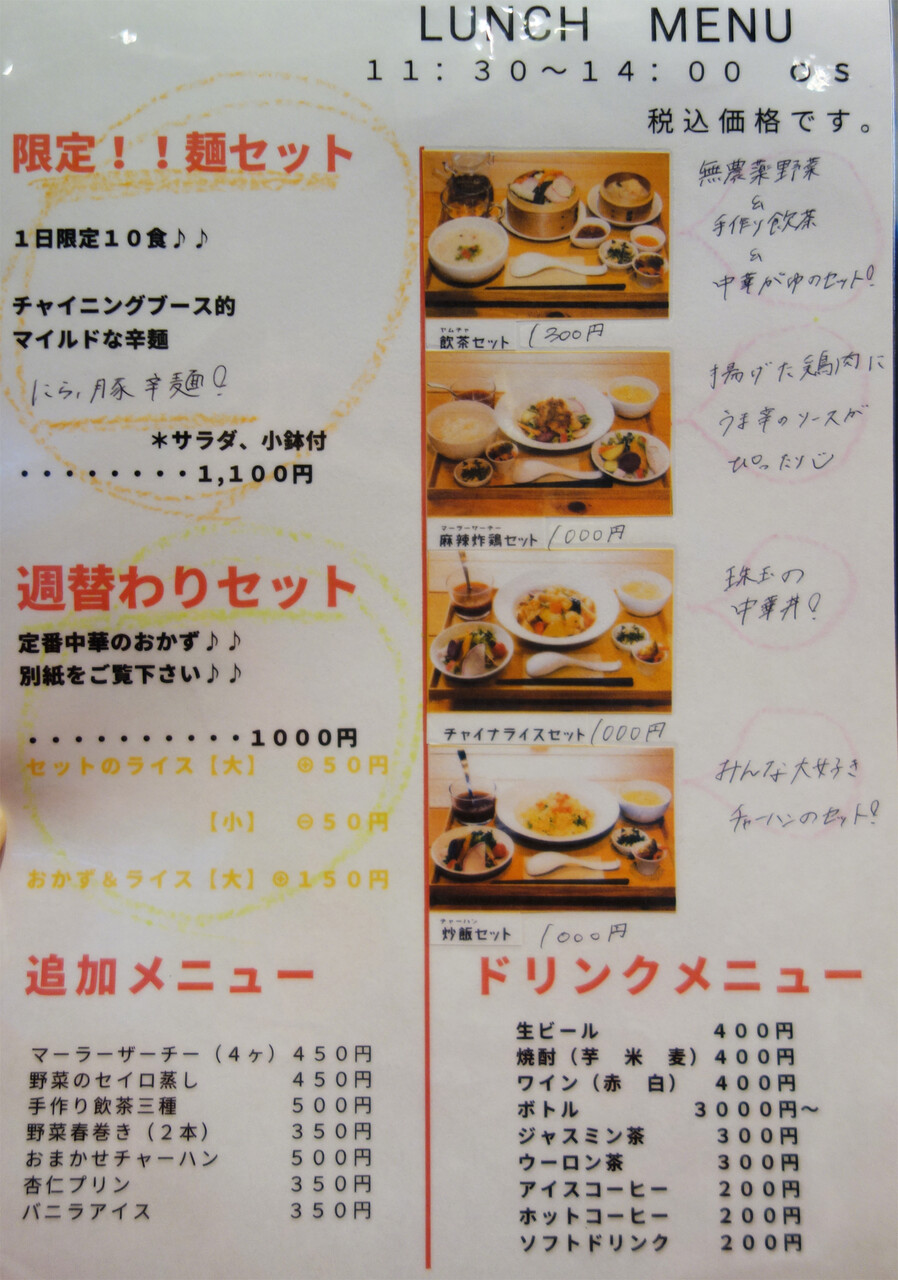 LUNCH MENU
11:30～14:00 OS
税込価格です。
限定！！麺セット
1日限定10食♪♪
チャイニングブース的
マイルドな辛麺
にら,豚辛麺！
＊サラダ、小鉢付
・・・・・・・・1,100円
週替わりセット
定番中華のおかず♪♪
別紙をご覧下さい♪♪
・・・・・・・・・・1000円
セットのライス【大】 ⊕50円
【小】 ⊖50円
おかず＆ライス【大】⊕150円
無農薬野菜
&
手作り飲茶
&
中華がゆのセット！
ヤムチャ
飲茶セット 1300円
揚げた鶏肉に
うま辛のソースが
ぴったり
マーラーザーチー
麻辣炸鶏セット 1000円
珠玉の
中華丼！
チャイナライスセット 1000円
みんな大好き
チャーハンのセット！
チャーハン
炒飯セット 1000円
追加メニュー
マーラーザーチー（4ヶ）450円
野菜のセイロ蒸し 450円
手作り飲茶三種 500円
野菜春巻き（2本） 350円
おまかせチャーハン 500円
杏仁プリン 350円
バニラアイス 350円
ドリンクメニュー
生ビール 400円
焼酎（芋 米 麦）400円
ワイン（赤 白） 400円
ボトル 3000円～
ジャスミン茶 300円
ウーロン茶 300円
アイスコーヒー 200円
ホットコーヒー 200円
ソフトドリンク 200円